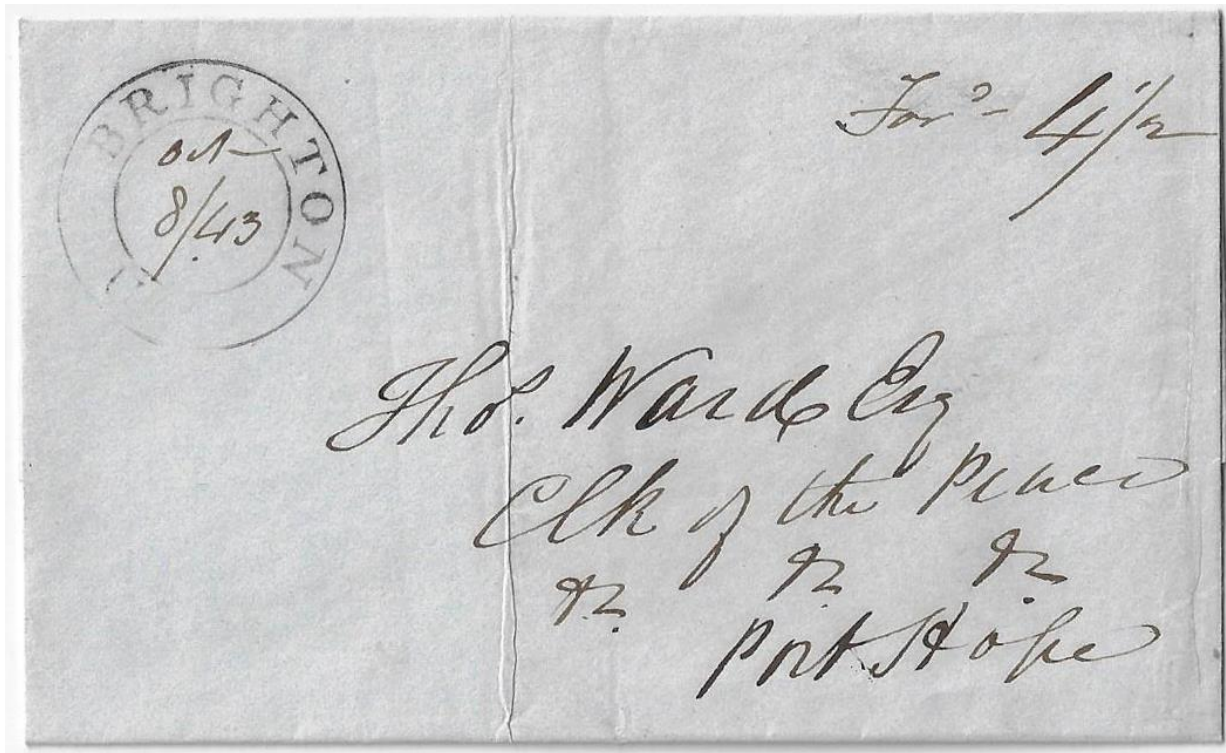 BRIGHTON
Oct
8/43
4 1/2
Thos. Ward Esq
Clk of the Peace
&c. &c. &c.
Port Hope